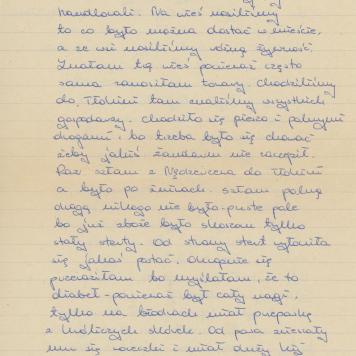 handlowali. Na wieś nosiliśmy
to co było można dostać w mieście,
a ze wsi nosiliśmy różną żywność.
Znałam tą wieś ponieważ często
sama zanosiłam towary. Chodziliśmy
do Tłokini tam znaliśmy wszystkich
gospodarzy. Chodziło się pieszo i polnymi
drogami bo trzeba było się chować
żeby jakiś żandarm nie zaczepił.
Raz szłam z do Tłokini
a było po żniwach. Szłam polną
drogą nikogo nie było - puste pole
bo już zboże było skoszone tylko
stały sterty. Od strony stert wyłoniła
się jakaś postać. Okropnie się
przeraziłam bo myślałam, że to
diabeł - ponieważ był cały nagi,
tylko na biodrach miał przepaskę
z skórek. Od pasa zwieszały
mu się i miał duży kij